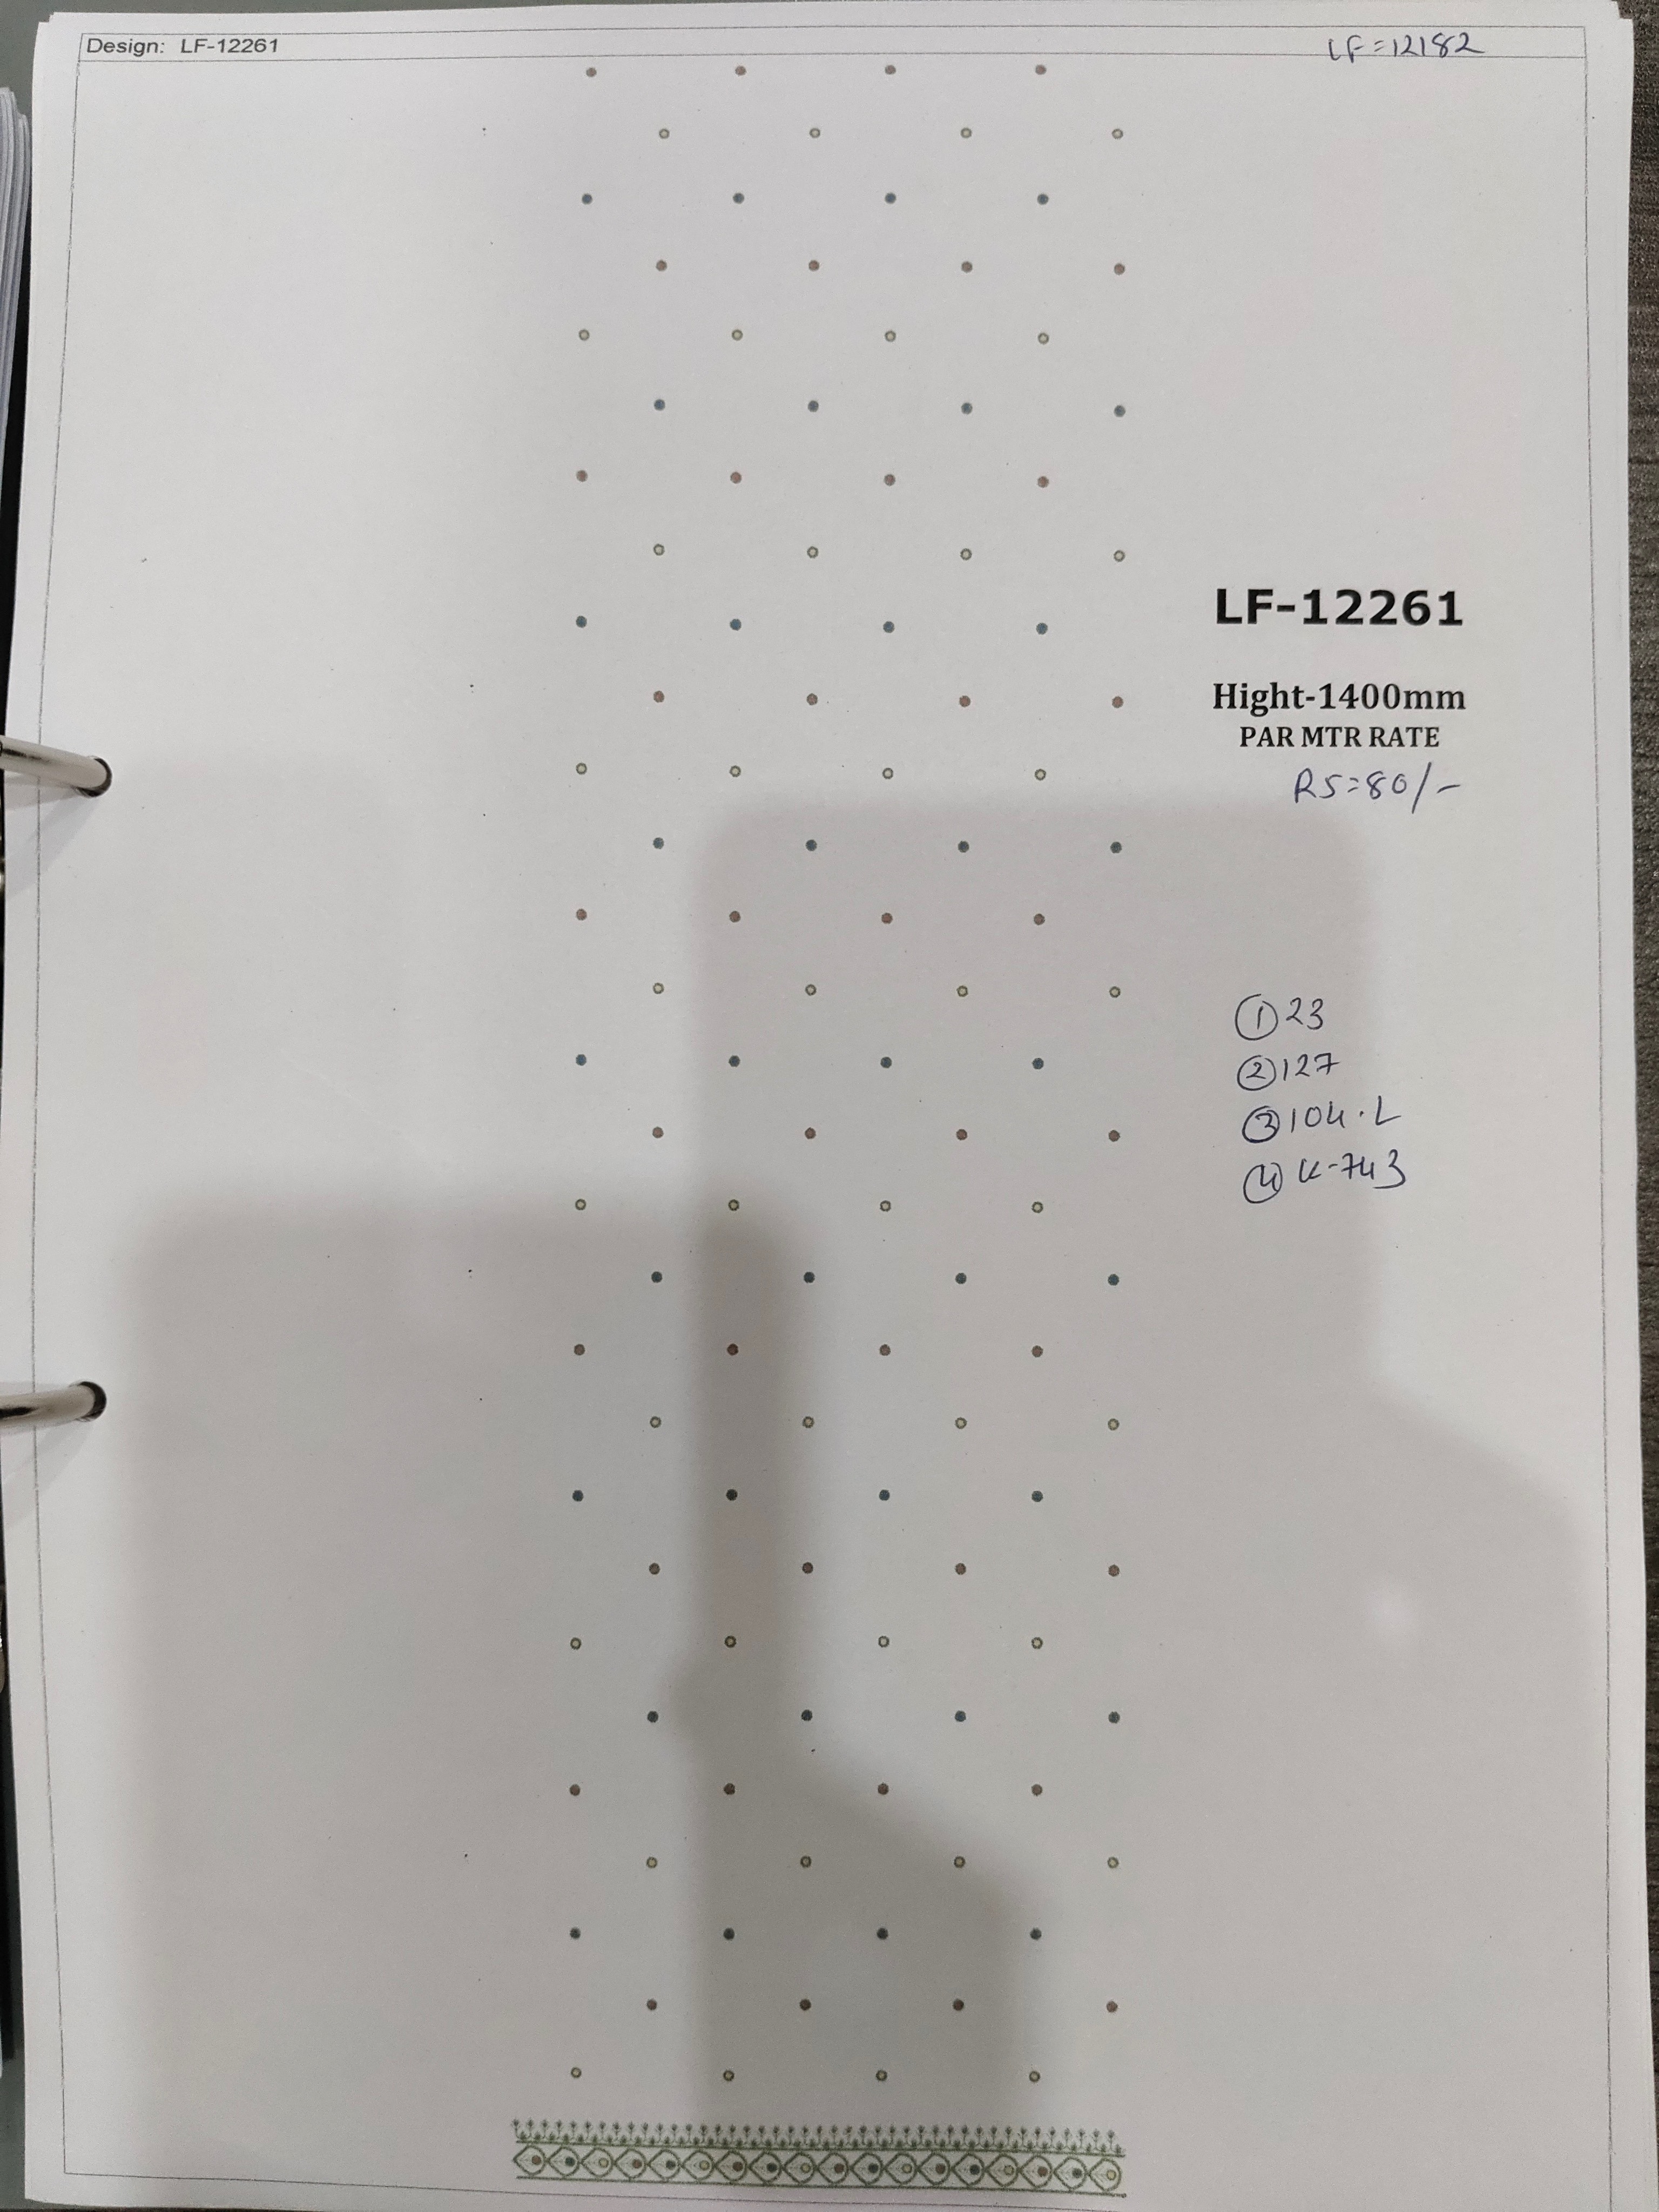 Design: LF-12261
LF=12182
LF-12261
Hight-1400mm
PAR MTR RATE
RS=80/-
① 23
② 127
③ 104.L
④ K-743